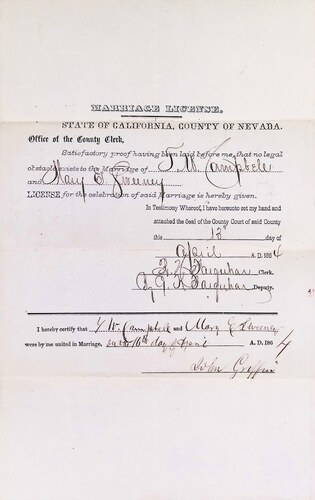 MARRIAGE LICENSE.
STATE OF CALIFORNIA, COUNTY OF NEVADA.
Office of the County Clerk,
Satisfactory proof having been laid before me, that no legal
obstacle exists to the Marriage of T. W. Campbell
and Mary E Sweeney
LICENSE for the celebration of said Marriage is hereby given.
In Testimony Whereof, I have hereunto set my hand and
attached the Seal of the County Court of said County
this 13th day of
April A. D. 1864
Farquhar Clerk.
By G. K. Farquhar Deputy.
I hereby certify that T W. Campbell and Mary E Sweeney
were by me united in Marriage, on the 16th day of April A. D. 1864
John Griffin